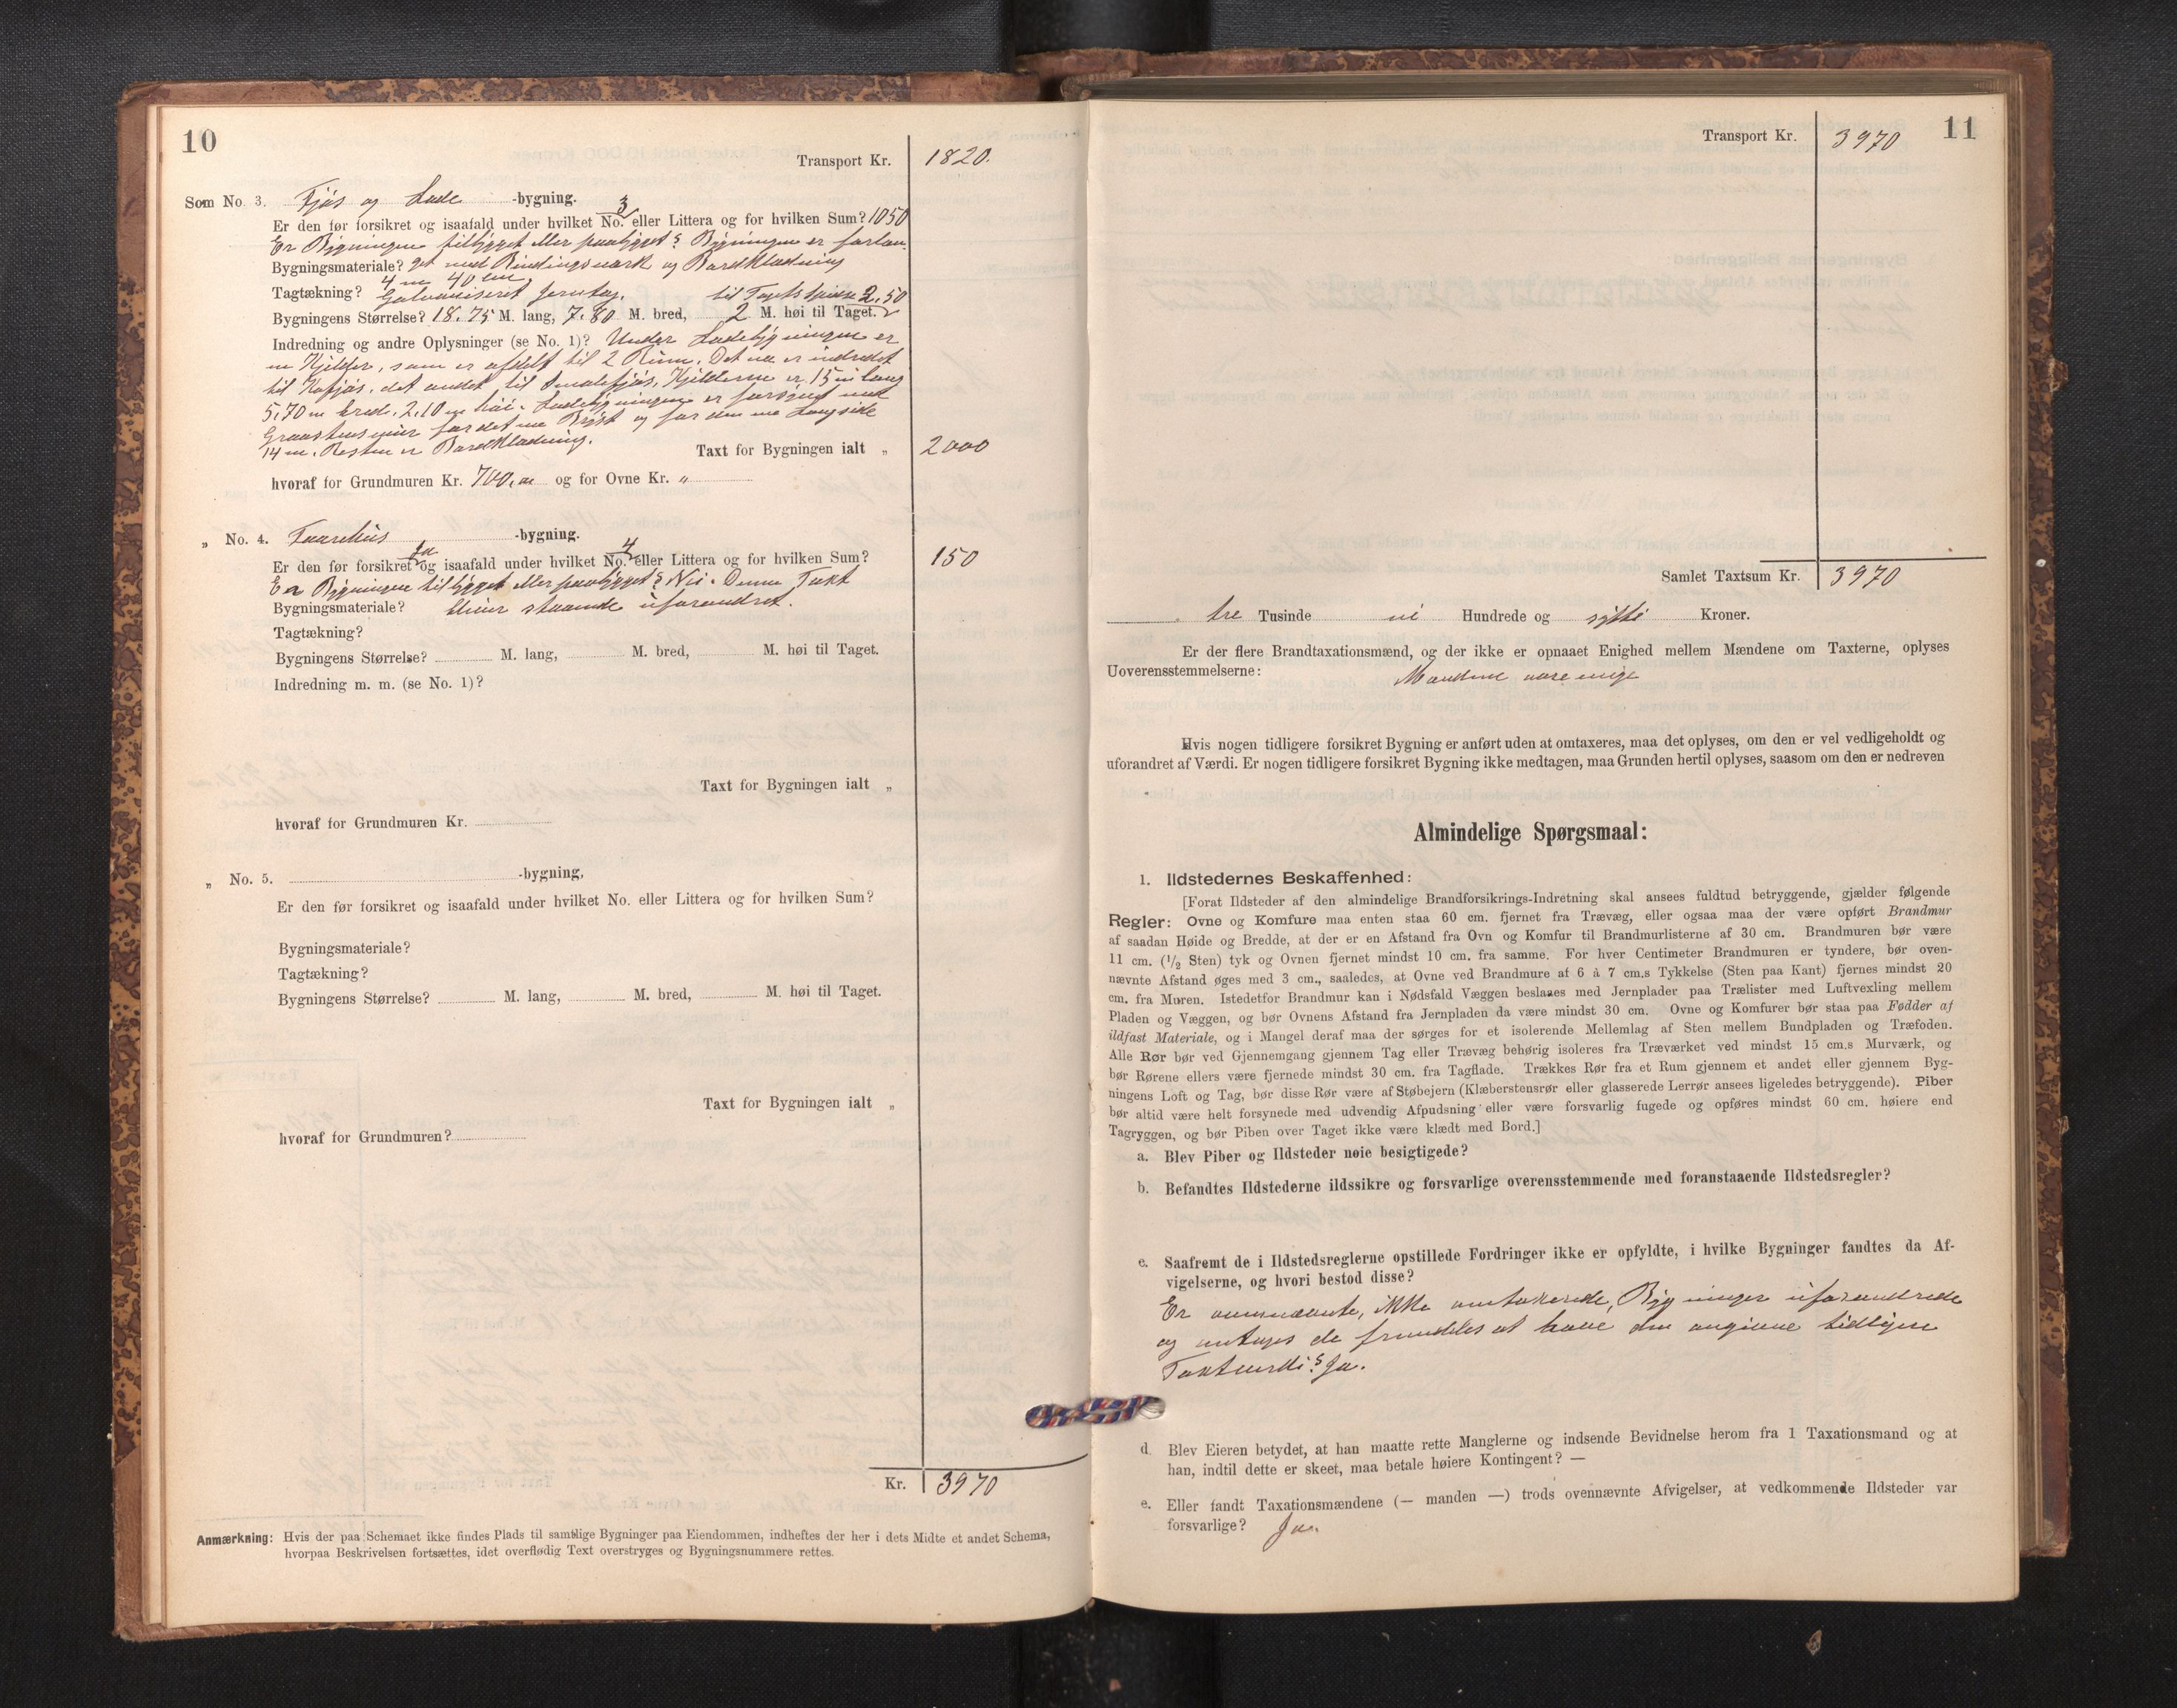 10
Transport Kr. 1820.
Som No. 3. Fjøs og Lade -bygning.
3
Er den før forsikret og isaafald under hvilket No. eller Littera og for hvilken Sum? 1050
Er Bygningen tilbygget eller paabygget? Bygningen er forlæn-
Bygningsmateriale? get med Bindingsværk og Bordklædning
4 m 40 cm
Tagtækning? Galvaniseret Jerntag. til Tagets Spidse 2,50
Bygningens Størrelse? 18.75 M. lang, 7.80 M. bred, 2 M. høi til Taget.
Indredning og andre Oplysninger (se No. 1)? Under Ladebygningen er
en Kjelder, som er afdelt til 2 Rum. Det ene er indredet
til Kofjøs, det andet til Smalefjøs, Kjelderne er 15 m lang
5,70 m bred, 2.10 m høi. Ladebygningen er forsynet med
Graastensmur for det ene Bryst og for den ene Langside
14 m. Resten er Bordklædning.
Taxt for Bygningen ialt „ 2000
hvoraf for Grundmuren Kr. 700,00 og for Ovne Kr. „
„ No. 4. Taarehus -bygning.
Ja 4
Er den før forsikret og isaafald under hvilket No. eller Littera og for hvilken Sum? 150
Er Bygningen tilbygget eller paabygget? Nei. Denne Takt
Bygningsmateriale? bliver staaende uforandret.
Tagtækning?
Bygningens Størrelse? M. lang, M. bred, M. høi til Taget.
Indredning m. m. (se No. 1)?
Taxt for Bygningen ialt „
hvoraf for Grundmuren Kr.
„ No. 5. -bygning,
Er den før forsikret og isaafald under hvilket No. eller Littera og for hvilken Sum?
Bygningsmateriale?
Tagtækning?
Bygningens Størrelse? M. lang, M. bred, M. høi til Taget.
Taxt for Bygningen ialt „
hvoraf for Grundmuren?
Kr. 3970
Anmærkning: Hvis der paa Schemaet ikke findes Plads til samtlige Bygninger paa Eiendommen, indheftes der her i dets Midte et andet Schema,
hvorpaa Beskrivelsen fortsættes, idet overflødig Text overstryges og Bygningsnummere rettes.
11
Transport Kr. 3970
Samlet Taxtsum Kr. 3970
tre Tusinde ni Hundrede og sytti Kroner.
Er der flere Brandtaxationsmænd, og der ikke er opnaaet Enighed mellem Mændene om Taxterne, oplyses
Uoverensstemmelserne: Mændene vare enige
Hvis nogen tidligere forsikret Bygning er anført uden at omtaxeres, maa det oplyses, om den er vel vedligeholdt og
uforandret af Værdi. Er nogen tidligere forsikret Bygning ikke medtagen, maa Grunden hertil oplyses, saasom om den er nedreven
Almindelige Spørgsmaal:
1. Ildstedernes Beskaffenhed:
[Forat Ildsteder af den almindelige Brandforsikrings-Indretning skal ansees fuldtud betryggende, gjælder følgende
Regler: Ovne og Komfure maa enten staa 60 cm. fjernet fra Trævæg, eller ogsaa maa der være opført Brandmur
af saadan Høide og Bredde, at der er en Afstand fra Ovn og Komfur til Brandmurlisterne af 30 cm. Brandmuren bør være
11 cm. (1/2 Sten) tyk og Ovnen fjernet mindst 10 cm. fra samme. For hver Centimeter Brandmuren er tyndere, bør oven-
nævnte Afstand øges med 3 cm., saaledes, at Ovne ved Brandmure af 6 à 7 cm.s Tykkelse (Sten paa Kant) fjernes mindst 20
cm. fra Muren. Istedetfor Brandmur kan i Nødsfald Væggen beslaaes med Jernplader paa Trælister med Luftvexling mellem
Pladen og Væggen, og bør Ovnens Afstand fra Jernpladen da være mindst 30 cm. Ovne og Komfurer bør staa paa Fødder af
ildfast Materiale, og i Mangel deraf maa der sørges for et isolerende Mellemlag af Sten mellem Bundpladen og Træfoden.
Alle Rør bør ved Gjennemgang gjennem Tag eller Trævæg behørig isoleres fra Træværket ved mindst 15 cm.s Murværk, og
bør Rørene ellers være fjernede mindst 30 cm. fra Tagflade. Trækkes Rør fra et Rum gjennem et andet eller gjennem Byg-
ningens Loft og Tag, bør disse Rør være af Støbejern (Klæberstensrør eller glasserede Lerrør ansees ligeledes betryggende). Piber
bør altid være helt forsynede med udvendig Afpudsning eller være forsvarlig fugede og opføres mindst 60 cm. høiere end
Tagryggen, og bør Piben over Taget ikke være klædt med Bord.]
a. Blev Piber og Ildsteder nøie besigtigede?
b. Befandtes Ildstederne ildssikre og forsvarlige overensstemmende med foranstaaende Ildstedsregler?
c. Saafremt de i Ildstedsreglerne opstillede Fordringer ikke er opfyldte, i hvilke Bygninger fandtes da Af-
vigelserne, og hvori bestod disse?
Er ovennævnte, ikke omtakserede, Bygninger uforandrede
og antages de fremdeles at have den angivne tidligere
Taktværdi? Ja.
d. Blev Eieren betydet, at han maatte rette Manglerne og indsende Bevidnelse herom fra 1 Taxationsmand og at
han, indtil dette er skeet, maa betale høiere Kontingent? —
e. Eller fandt Taxationsmændene (— manden —) trods ovennævnte Afvigelser, at vedkommende Ildsteder var
forsvarlige? Ja.